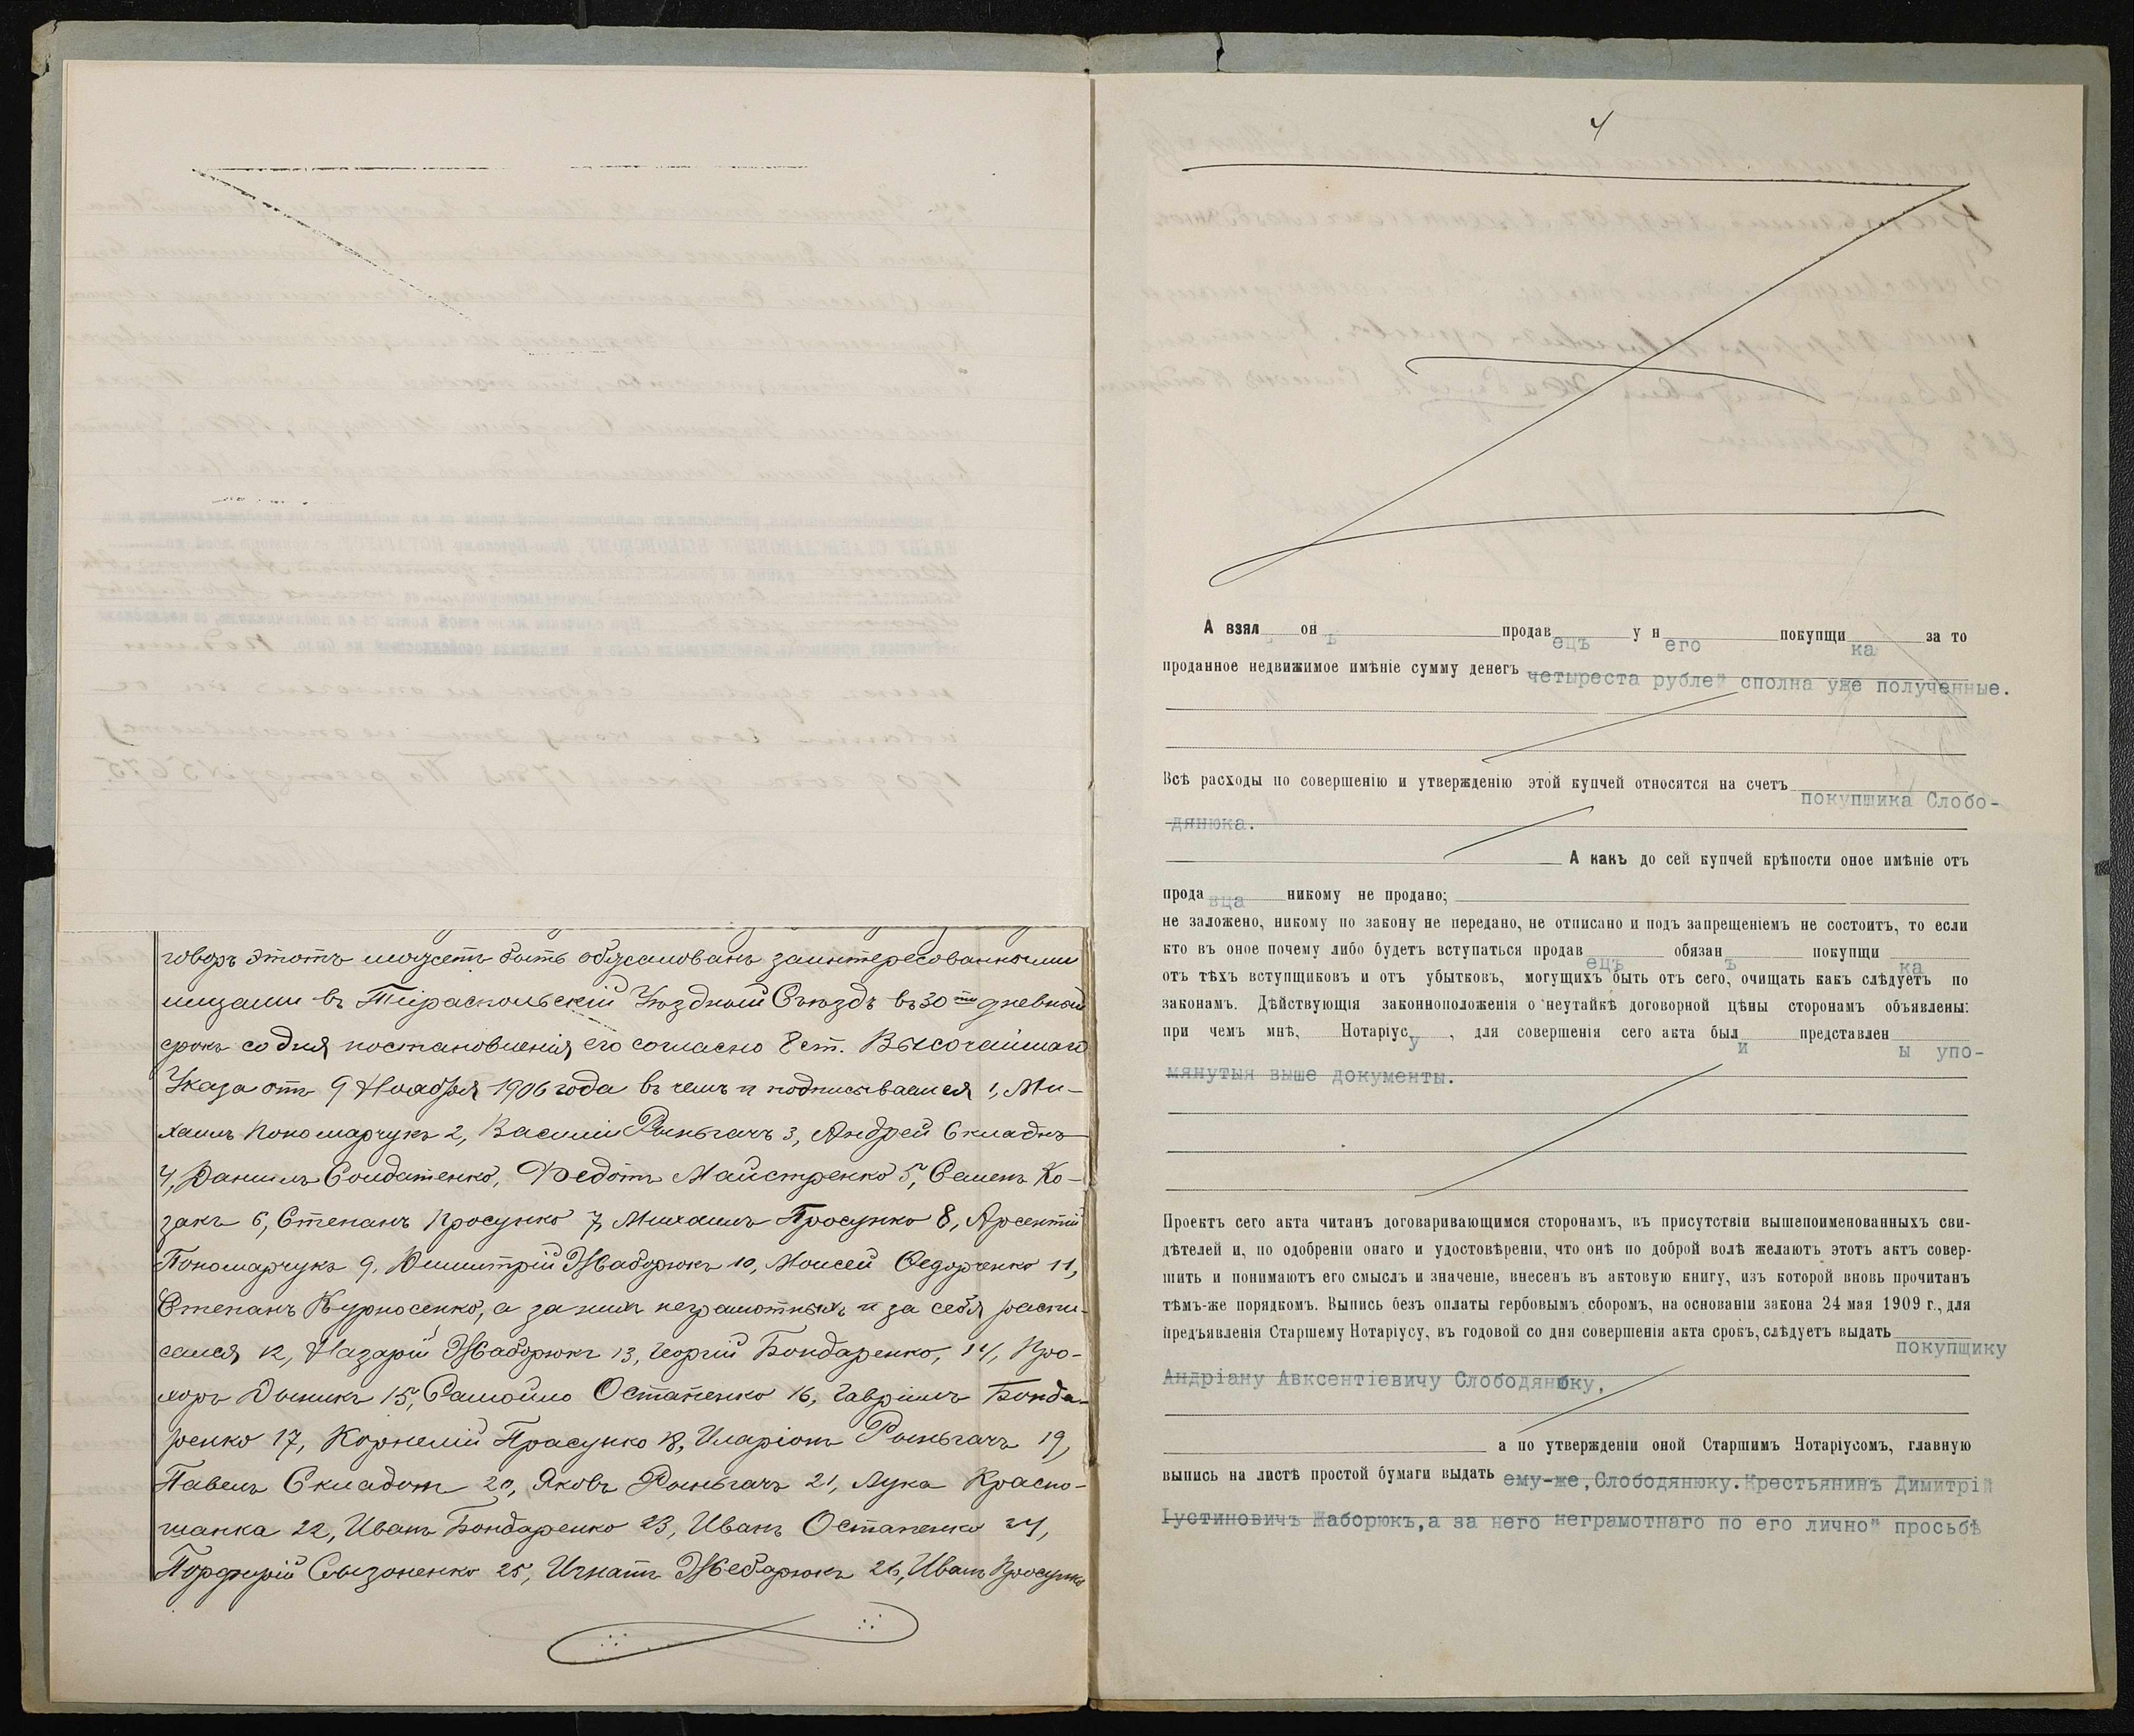 говоръ этотъ можетъ быть обжалованъ заинтересованными
лицами въ Тираспольскій Уѣздный Съѣздъ въ 30ти дневный
срокъ со дня постановленія его согласно 8 ст. Высочайшаго
Указа отъ 9 Ноября 1906 года въ чемъ и подписываемся 1, Ми-
хаилъ Пономарчукъ 2, Василій Рыньгачъ 3, Андрей Складнъ
4, Данилъ Солдатенко, Федотъ Майстренко 5, Семенъ Ко-
закъ 6, Степанъ Просунко 7, Михаилъ Просунко 8, Арсентій
Пономарчукъ 9, Димитрій Жаборюкъ 10, Моисей Федорченко 11,
Степанъ Курносенко, а за нихъ неграмотныхъ и за себя распи-
сался 12, Назарій Жаборюкъ 13, Георгій Бондаренко, 14, Про-
хоръ Дыникъ 15, Самойло Остапенко 16, Гавріилъ Бонда-
ренко 17, Корнелій Прасунко 18, Иларіонъ Рыньгачъ 19,
Павелъ 20, Яковъ Рыньгачъ 21, Лука Красно-
шапка 22, Иванъ Бондаренко 23, Иванъ Остапенко 24,
Порфирій Сызоненко 25, Игнатъ Жебарюкъ 26, Иванъ Просунко
4
А взялъ онъ продавецъ у него покупщика за то
проданное недвижимое имѣніе сумму денегъ четыреста рублей сполна уже полученные.
Всѣ расходы по совершенію и утвержденію этой купчей относятся на счетъ покупщика Слобо-
дянюка.
А какъ до сей купчей крѣпости оное имѣніе отъ
продавца никому не продано;
не заложено, никому по закону не передано, не отписано и подъ запрещеніемъ не состоитъ, то если
кто въ оное почему либо будетъ вступаться продавецъ обязанъ покупщика
отъ тѣхъ вступщиковъ и отъ убытковъ, могущихъ быть отъ сего, очищать какъ слѣдуетъ по
законамъ. Дѣйствующія законноположенія о неутайкѣ договорной цѣны сторонамъ объявлены:
при чемъ мнѣ, Нотаріусу, для совершенія сего акта были представлены упо-
мянутыя выше документы.
Проектъ сего акта читанъ договаривающимся сторонамъ, въ присутствіи вышепоименованныхъ сви-
дѣтелей и, по одобреніи онаго и удостовѣреніи, что онѣ по доброй волѣ желаютъ этотъ актъ совер-
шить и понимаютъ его смыслъ и значеніе, внесенъ въ актовую книгу, изъ которой вновь прочитанъ
тѣмъ-же порядкомъ. Выпись безъ оплаты гербовымъ сборомъ, на основаніи закона 24 мая 1909 г., для
предъявленія Старшему Нотаріусу, въ годовой со дня совершенія акта срокъ, слѣдуетъ выдать покупщику
Андріану Авксентіевичу Слободянюку,
а по утвержденіи оной Старшимъ Нотаріусомъ, главную
выпись на листѣ простой бумаги выдать ему-же, Слободянюку. Крестьянинъ Димитрій
Іустиновичъ Жаборюкъ, а за него неграмотнаго по его личной просьбѣ